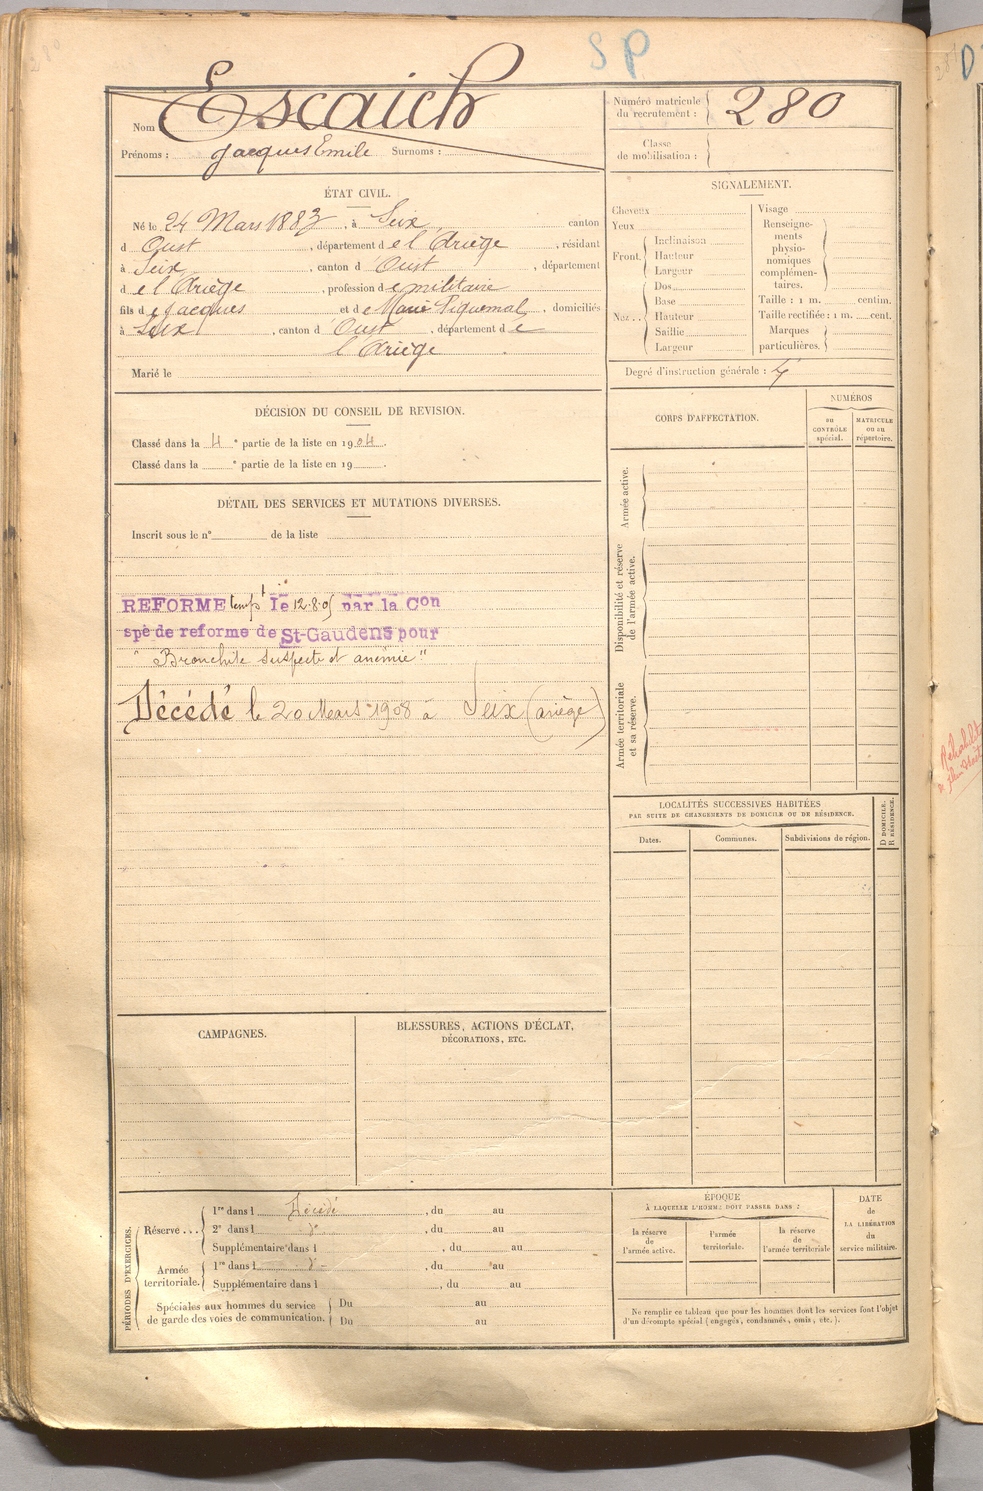 S P
Nom Escaich
Prénoms : Jacques Emile Surnoms :
Numéro matricule du recrutement : 280
Classe de mobilisation :
ÉTAT CIVIL.
Né le 24 Mars 1883, à Seix, canton
d Oust, département de l'Ariège, résidant
à Seix, canton d Oust, département
de l'Ariège, profession de militaire
fils de Jacques et de Marie Piquemal, domiciliés
à Seix, canton d Oust, département de
l'Ariège
Marié le
SIGNALEMENT.
Cheveux
Yeux
Front. Inclinaison
Hauteur
Largeur
Nez. . Dos
Base
Hauteur
Saillie
Largeur
Visage
Renseigne-
ments
physio-
nomiques
complémen-
taires.
Taille : 1 m. centim.
Taille rectifiée : 1 m. cent.
Marques
particulières.
Degré d'instruction générale :
DÉCISION DU CONSEIL DE REVISION.
Classé dans la 4 e partie de la liste en 1904.
Classé dans la e partie de la liste en 19 .
DÉTAIL DES SERVICES ET MUTATIONS DIVERSES.
Inscrit sous le n° de la liste
REFORME tempt le 12.8.05 par la Con
spe de reforme de St-Gaudens pour
" Bronchite suspecte et anémie "
Décédé le 20 Mars 1908 à Seix (ariège)
CORPS D'AFFECTATION.
NUMÉROS
au
CONTRÔLE
spécial.
MATRICULE
ou au
répertoire.
Armée active.
Disponibilité et réserve
de l'armée active.
Armée territoriale
et sa réserve.
LOCALITÉS SUCCESSIVES HABITÉES
PAR SUITE DE CHANGEMENTS DE DOMICILE OU DE RÉSIDENCE.
Dates.
Communes.
Subdivisions de région.
D DOMICILE.
R RÉSIDENCE.
CAMPAGNES.
BLESSURES, ACTIONS D'ÉCLAT,
DÉCORATIONS, ETC.
PÉRIODES D'EXERCICES.
Réserve . . . 1re dans l Décédé, du au
2e dans l do, du au
Supplémentaire dans l , du au
Armée territoriale. 1re dans l do, du au
Supplémentaire dans l , du au
Spéciales aux hommes du service
de garde des voies de communication.
Du au
Du au
ÉPOQUE
À LAQUELLE L'HOMME DOIT PASSER DANS :
la réserve
de
l'armée active.
l'armée
territoriale.
la réserve
de
l'armée territoriale
DATE
de
LA LIBÉRATION
du
service militaire.
Ne remplir ce tableau que pour les hommes dont les services font l'objet
d'un décompte spécial (engagés, condamnés, omis, etc.).
D